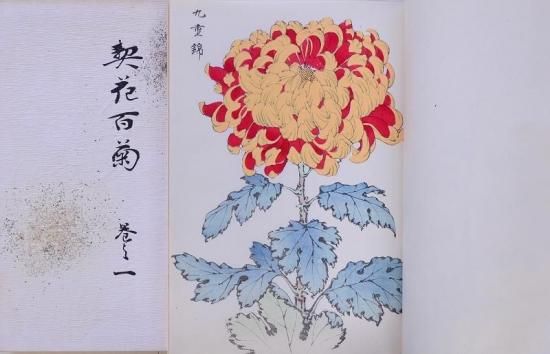 契花百菊
巻之一
九重錦